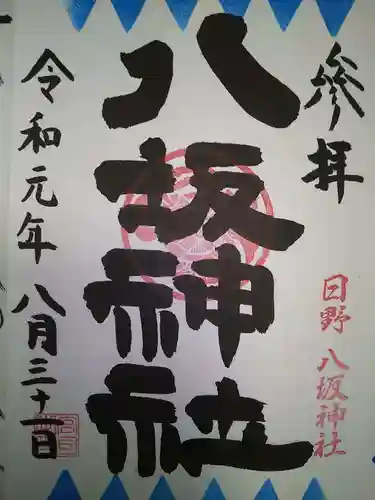 参拝
日野 八坂神社
八坂神社
令和元年 八月三十一日